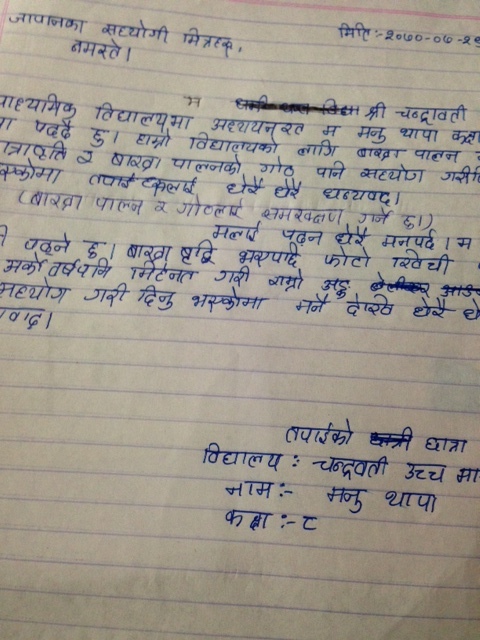 जापानका सहयोगी मित्रहरू,
मिति:-२०७०-०७-२९
नमस्ते।
म श्री चन्द्रावती
माध्यमिक विद्यालयमा अध्ययनरत म मनु थापा कक्षा
पढ्दै छु। हाम्रो विद्यालयको लागि बाख्रा पालन
छात्रावृति र बाख्रा पालनको गोठ पनि सहयोग गरी
भएकोमा तपाईहरूलाई धेरै धेरै धन्यवाद।
(बाख्रा पालन र गोठलाई समरक्षण गर्ने छु।)
मलाई पढ्न धेरै मनपर्द। म
पढ्ने छु। बाख्रा वृद्धि भएपछि फोटो खिची
अर्को वर्षपनि मिहेनत गरी राम्रो अङ्क
सहयोग गरी दिनु भएकोमा मनै देखि धेरै
तपाईको छात्रा
विद्यालय : चन्द्रवती उच्च मा
नाम:- मनु थापा
कक्षा :- ८